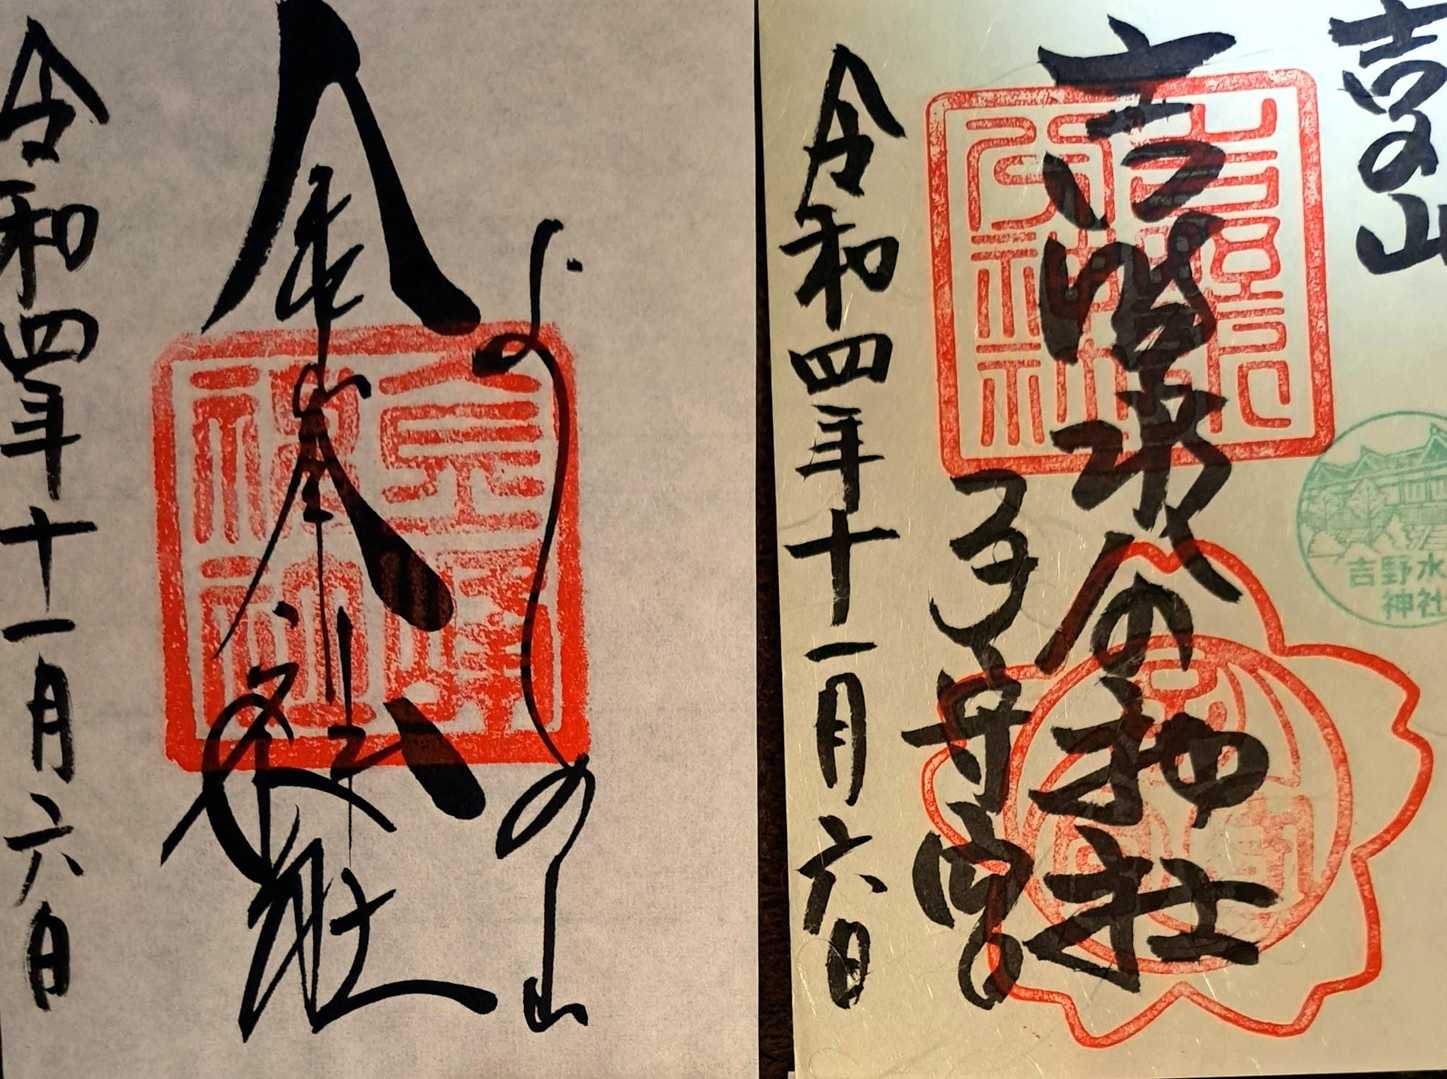 よしの山
金峯神社
令和四年十一月六日
金峯神社
吉の山
吉野水分神社
子守宮
令和四年十一月六日
吉野水
神社